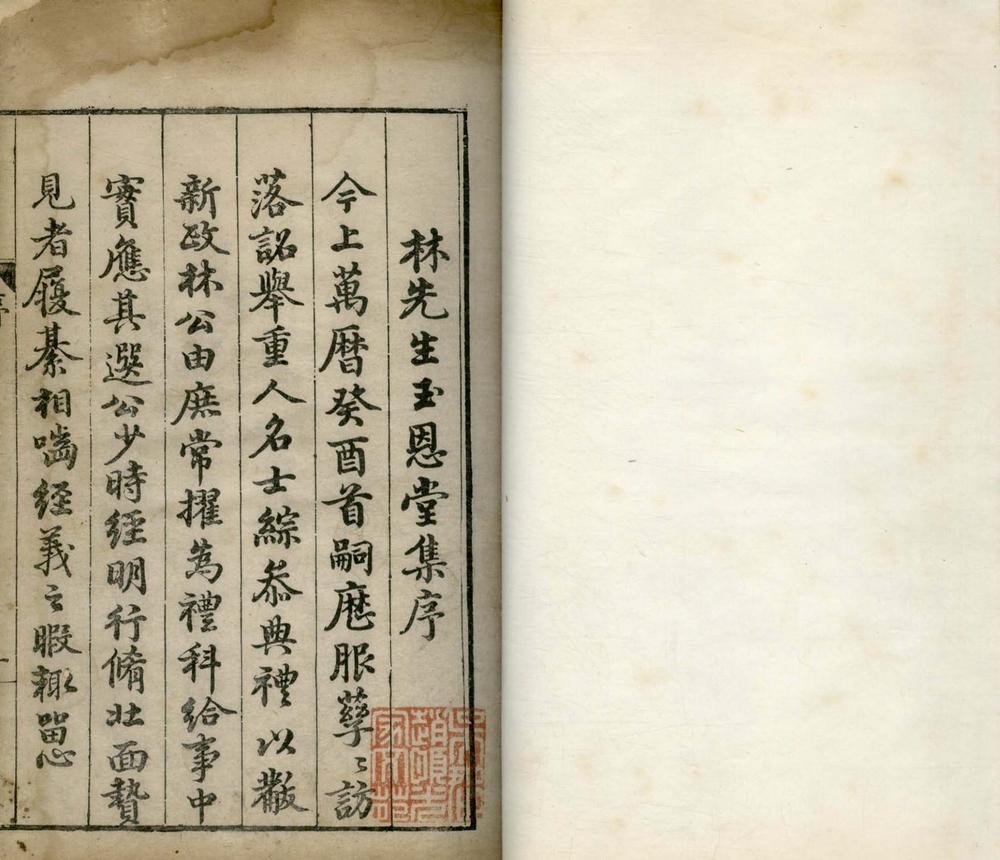 林先生玉恩堂集序
今上萬曆癸酉首嗣歷服孳〻訪
落詔舉重人名士綜叅典禮以黻
新政林公由庶常擢為禮科給事中
實應其選公少時經明行脩壯面贄
見者履綦相嚙經義之暇輒留心
序